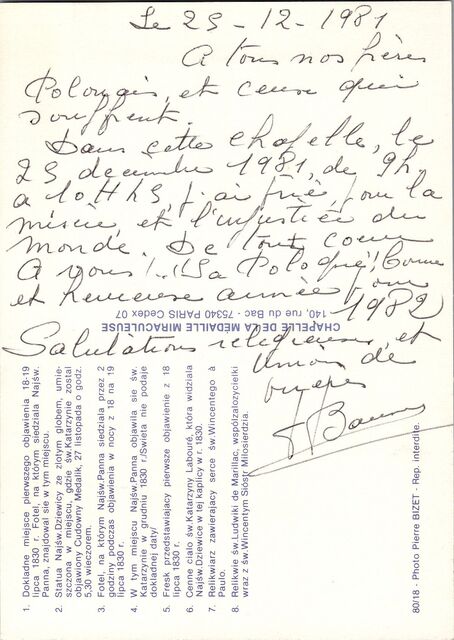 Le 25-12-1981
A tous nos frères
Polonais, et ceux qui
souffrent.
Dans cette chapelle, le
25 decembre 1981, de 9h,
a 10H45, j'ai prié, pour la
misère et l'injustice du
monde. De tout coeur
A vous!..Sa Pologne! Bonne
et heureuse année pour
1982
Salutations religieuses, et
Union de
prières
CHAPELLE DE LA MEDAILLE MIRACULEUSE
140, rue du Bac - 75340 PARIS Cedex 07
1. Dokładne miejsce pierwszego objawienia 18-19
lipca 1830 r. Fotel, na którym siedziała Najśw.
Panna, znajdował się w tym miejscu.
2. Statua Najśw.Dziewicy ze złotym globem, umie-
szczona w miejscu, gdzie św.Katarzynie został
objawiony Cudowny Medalik, 27 listopada o godz.
5,30 wieczorem.
3. Fotel, na którym Najśw.Panna siedziała przez 2
godziny podczas objawienia w nocy z 18 na 19
lipca 1830 r.
4. W tym miejscu Najśw.Panna objawiła się św.
Katarzynie w grudniu 1830 r./Święta nie podaje
dokładnej daty/
5. Fresk przedstawiający pierwsze objawienie z 18
lipca 1830 r.
6. Cenne ciało św.Katarzyny Labouré, która widziała
Najśw.Dziewice w tej kaplicy w r. 1830.
7. Relikwiarz zawierający serce św.Wincentego à
Paulo.
8. Relikwie św.Ludwiki de Marillac, współzałożycielki
wraz z św.Wincentym Sióstr Miłosierdzia.
80/18 - Photo Pierre BIZET - Rep. interdite.